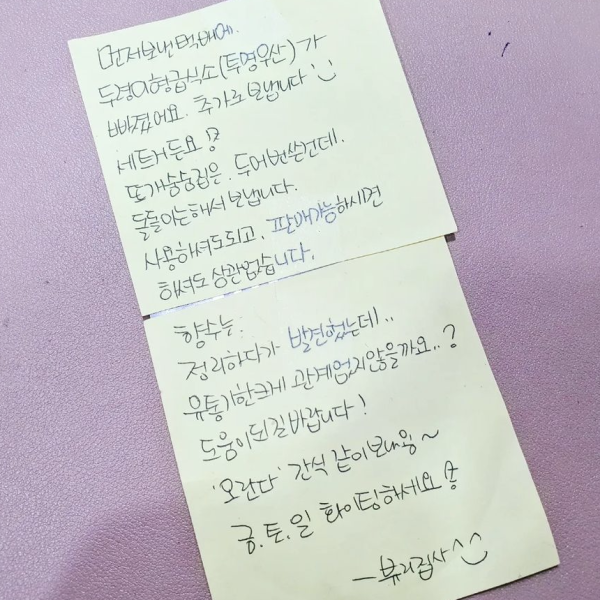 먼저보낸택배에.
두령이형급식소(투명우산)가
빠졌어요. 추가로보냅니다
세트거든요
또개숑숑집은. 두어번쓴건데.
돌돌이는해서보냅니다.
사용하셔도되고, 판매가능하시면
하셔도 상관없습니다.
향수는:
정리하다가 발견했는데..
유통기한크게 관계없지않을까요..?
도움이되길바랍니다!
'오란다' 간식 같이보내용~
금.토.일 화이팅하세요
-뷰리집사^^